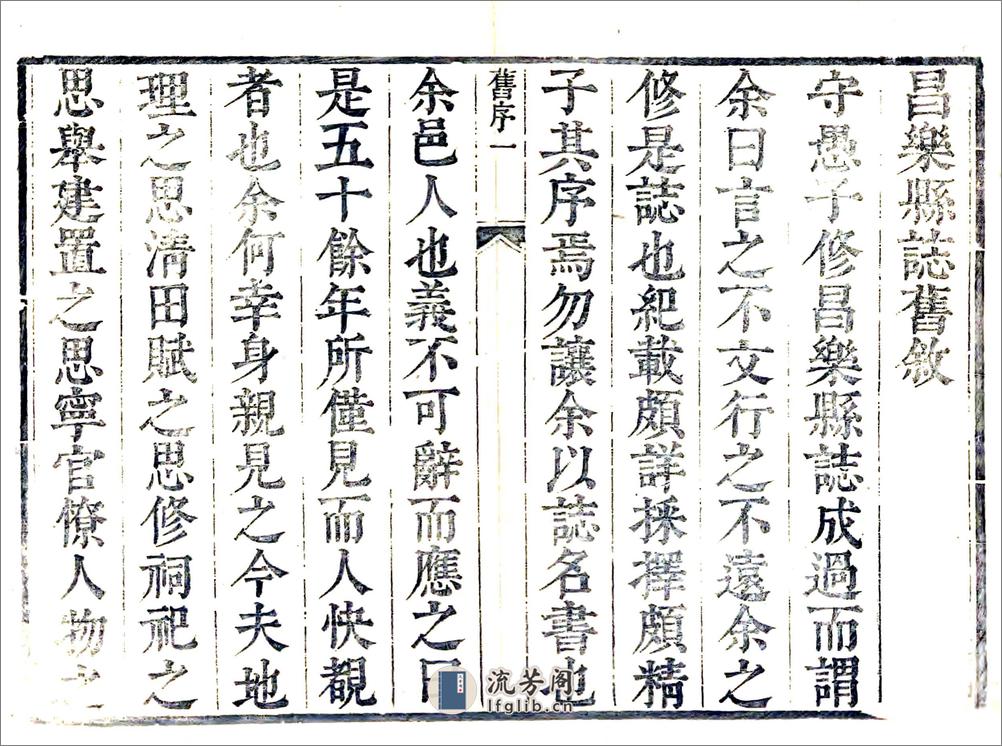 昌樂縣誌舊敘
守愚子修昌樂縣誌成過而謂
余曰言之不文行之不遠余之
修是誌也紀載頗詳採擇頗精
子其序焉勿讓余以誌名書也
舊序一
余邑人也義不可辭而應之曰
是五十餘年所僅見而人快覩
者也余何幸身親見之今夫地
理之思清田賦之思修祠祀之
思舉建置之思寧官僚人物之
流芳阁
lfglib.cn